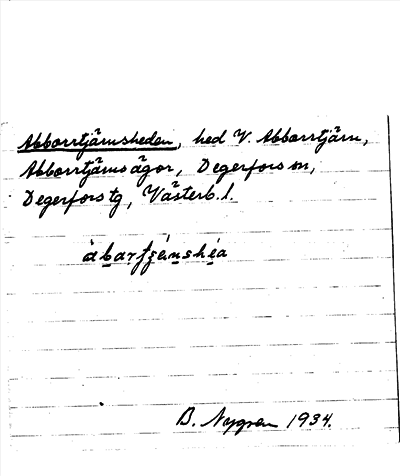 Abborrtjärnsheden, hed V. Abborrtjärn,
Abborrtjärnsägor, Degerfors sn,
Degerfors tg, Västerb. l.
B. Nygren 1934.